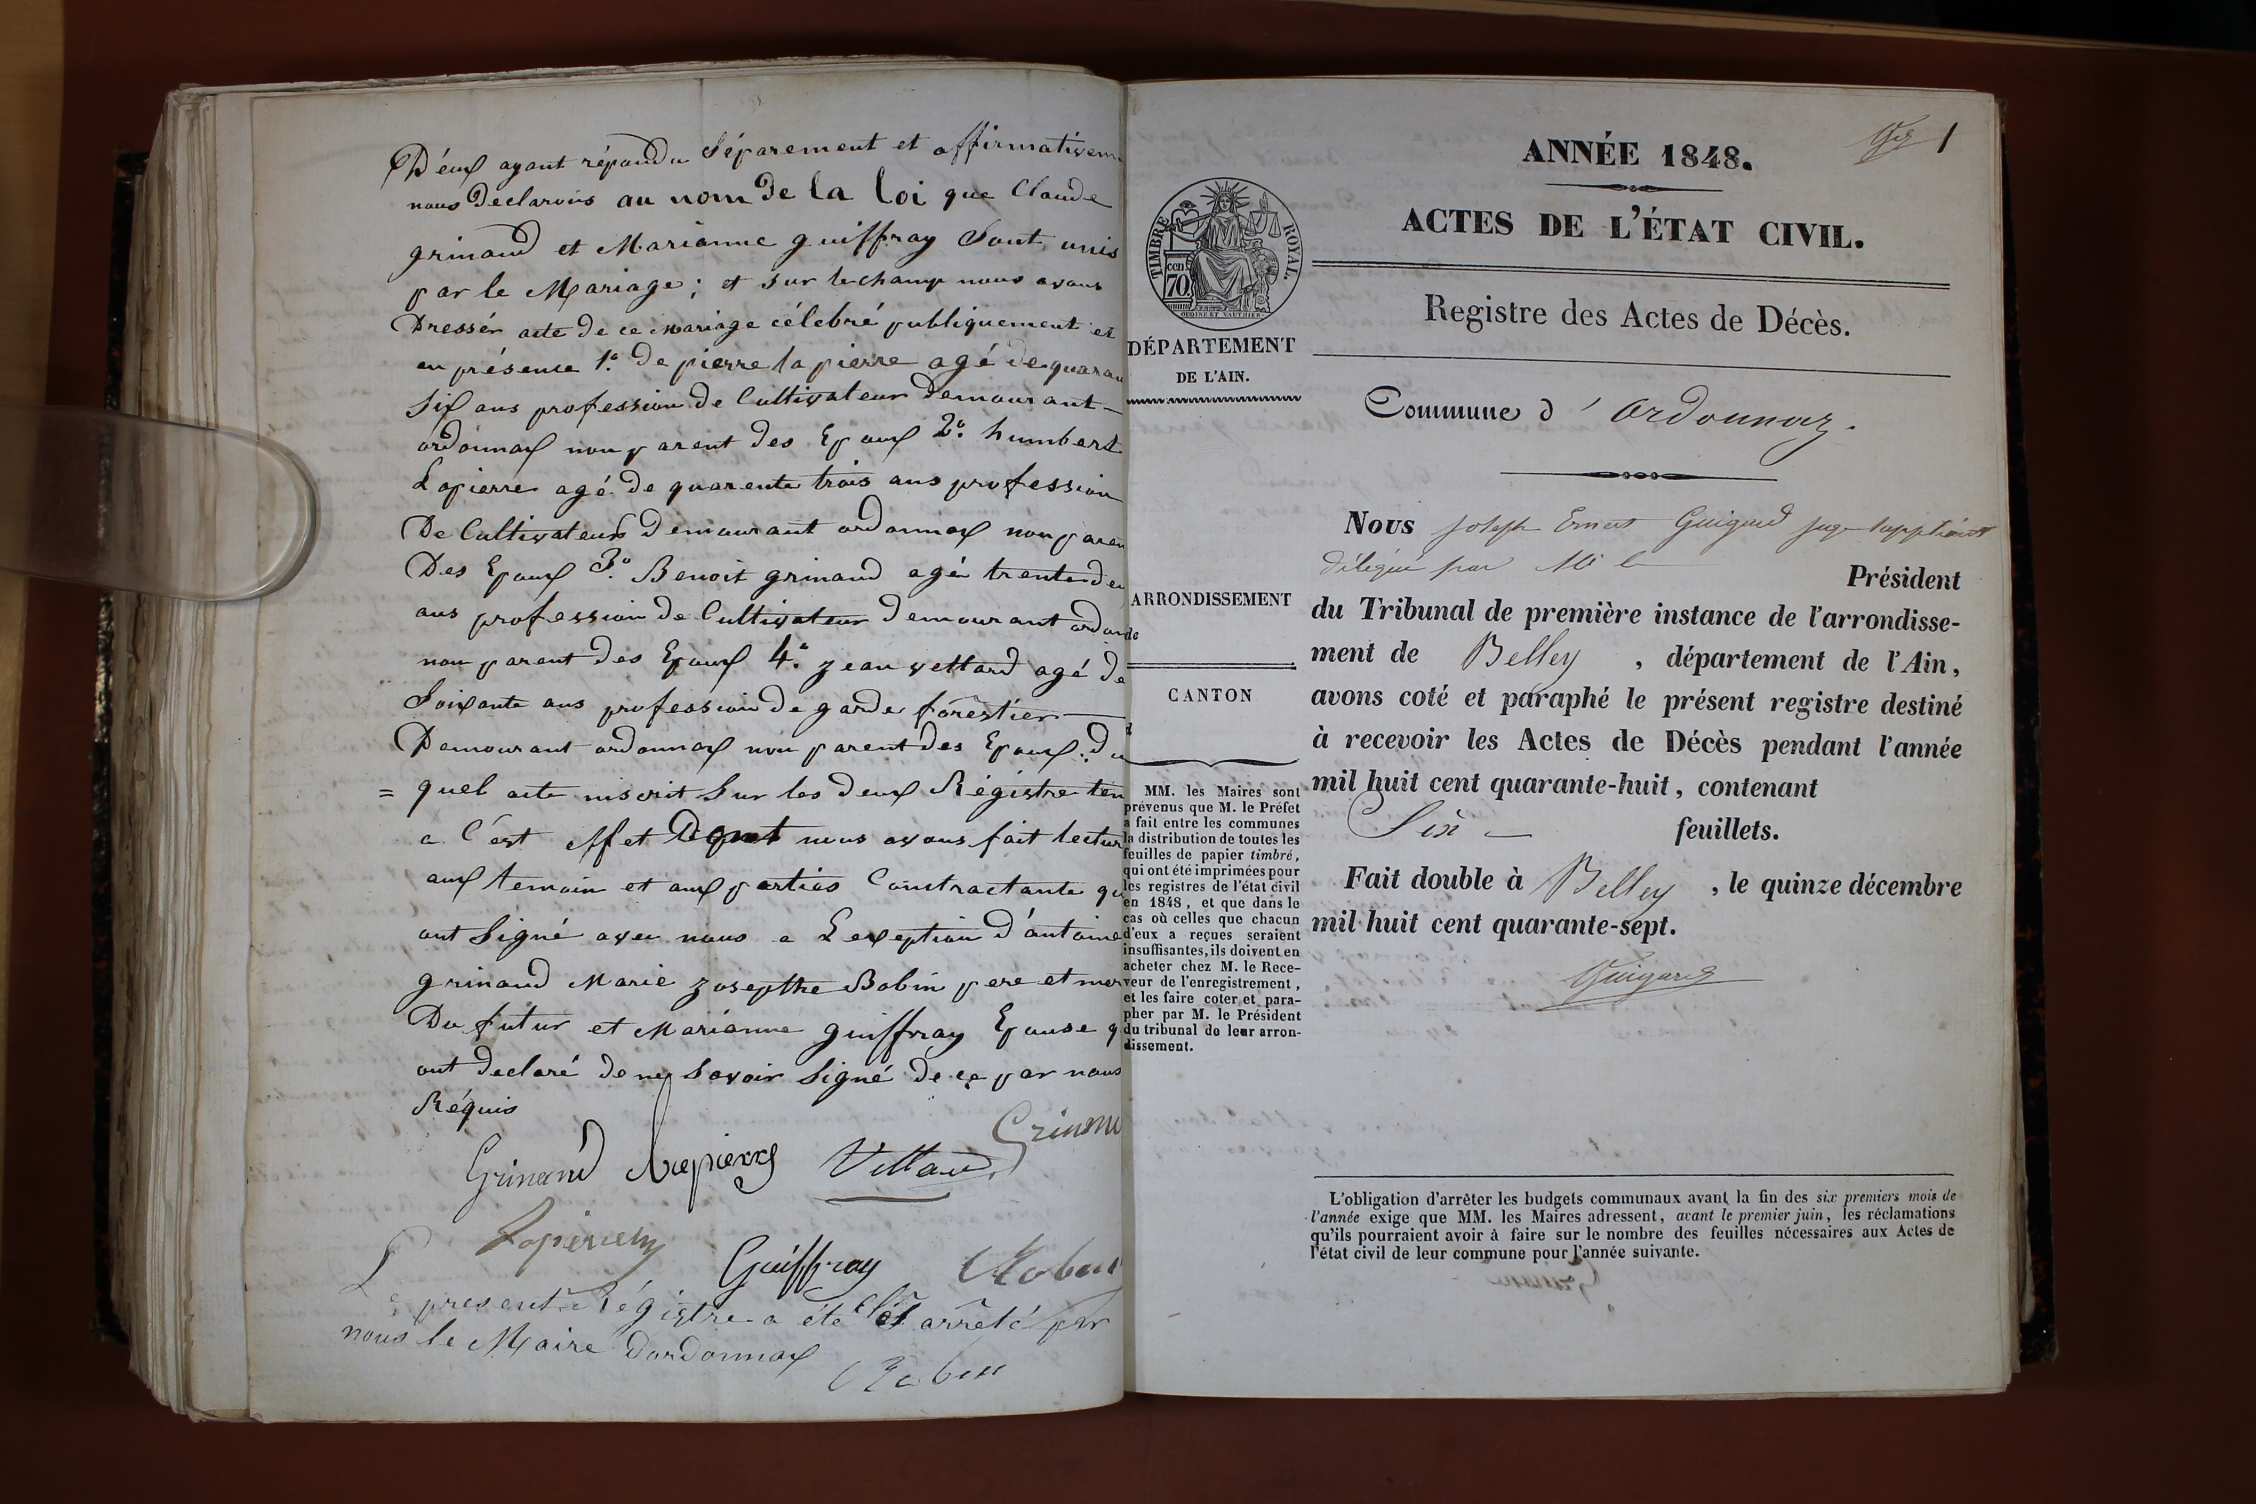 D'eux ayant répondu Séparement et affirmativem
nous Declarons au nom De la loi que Claude
grinand et Marianne guiffray Sont unis
par le Mariage ; et sur le champ nous avons
Dressér acte de ce mariage célebré publiquement et
en présence 1.° De pierre lapierre agé de quaran
Six ans profession de Cultivateur Demourant
ordonnax non parent des Epoux 2.° humbert
Lapierre agé de quarente trois ans profession
De Cultivateur Demourant ordonnax non paren
Des Epoux 3.° Benoit grinand agée trente de
ans profession de Cultivateur Demourant ordon
non parent des Epoux 4.° jean vettard agé de
Soixante ans profession de garde forestier
Demourant ordonnax non parent des Epoux. du
= quel acte inscrit Sur les deux Régistre ten
a C'est effet Dont nous avons fait lectur
aux temoin et aux parties Constractante qu
ont Signé avec nous a Lexeption d'antoine
grinand Marie josepthe Bobin pere et mer
Du futur et Marianne guiffray Epouse q
ont declaré de ne Savoir Signé de ce par nous
Réquis
Grinand Lapierre Vettard Grinand
Guiffray
Le present Régistre a été clos arrêté par
nous le Maire Dordonnax
1
ANNÉE 1848.
ACTES DE L'ÉTAT CIVIL.
TIMBRE ROYAL.
cen
70.
Registre des Actes de Décès.
DÉPARTEMENT
DE L'AIN.
Commune d' ordonnaz.
Nous Joseph Ernest Guigard juge suppléant
délégué par Mr le Président
ARRONDISSEMENT
de
du Tribunal de première instance de l'arrondisse-
ment de Belley , département de l'Ain,
CANTON
d
avons coté et paraphé le présent registre destiné
à recevoir les Actes de Décès pendant l'année
mil huit cent quarante-huit, contenant
Six feuillets.
Fait double à Belley , le quinze décembre
mil huit cent quarante-sept.
Guigard
MM. les Maires sont
prévenus que M. le Préfet
a fait entre les communes
la distribution de toutes les
feuilles de papier timbré,
qui ont été imprimées pour
les registres de l'état civil
en 1848, et que dans le
cas où celles que chacun
d'eux a reçues seraient
insuffisantes, ils doivent en
acheter chez M. le Rece-
veur de l'enregistrement,
et les faire coter et para-
pher par M. le Président
du tribunal de leur arron-
dissement.
L'obligation d'arrêter les budgets communaux avant la fin des six premiers mois de
l'année exige que MM. les Maires adressent, avant le premier juin, les réclamations
qu'ils pourraient avoir à faire sur le nombre des feuilles nécessaires aux Actes de
l'état civil de leur commune pour l'année suivante.